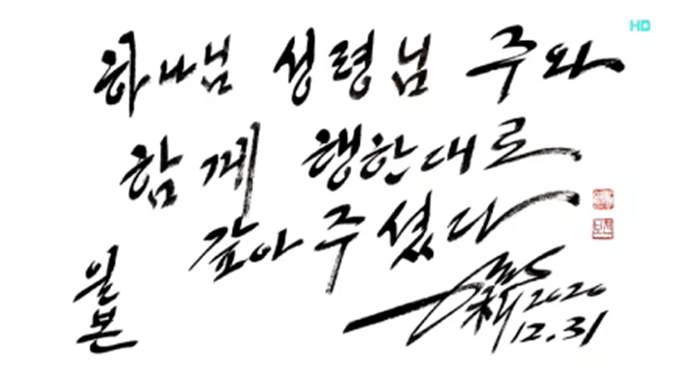 HD
하나님 성령님 주와
함께 행한대로
갚아 주셨다
일본
2020
12.31